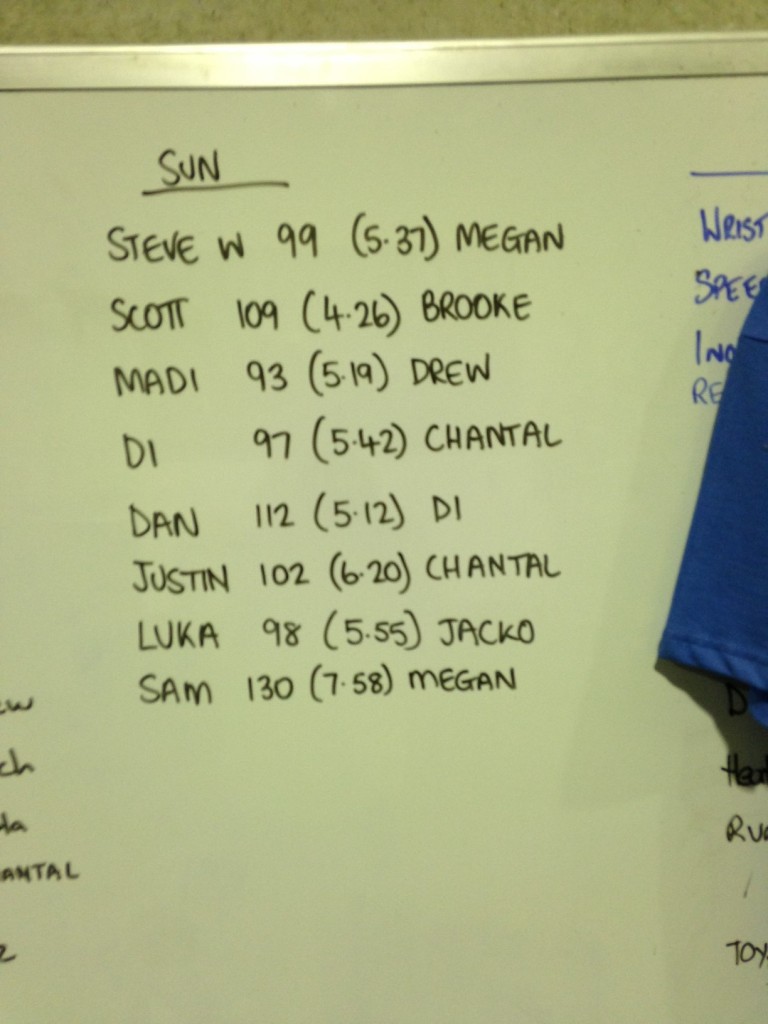 SUN
STEVE W 99 (5.37) MEGAN
SCOTT 109 (4.26) BROOKE
MADI 93 (5.19) DREW
DI 97 (5.42) CHANTAL
DAN 112 (5.12) DI
JUSTIN 102 (6.20) CHANTAL
LUKA 98 (5.55) JACKO
SAM 130 (7.58) MEGAN
WRIST